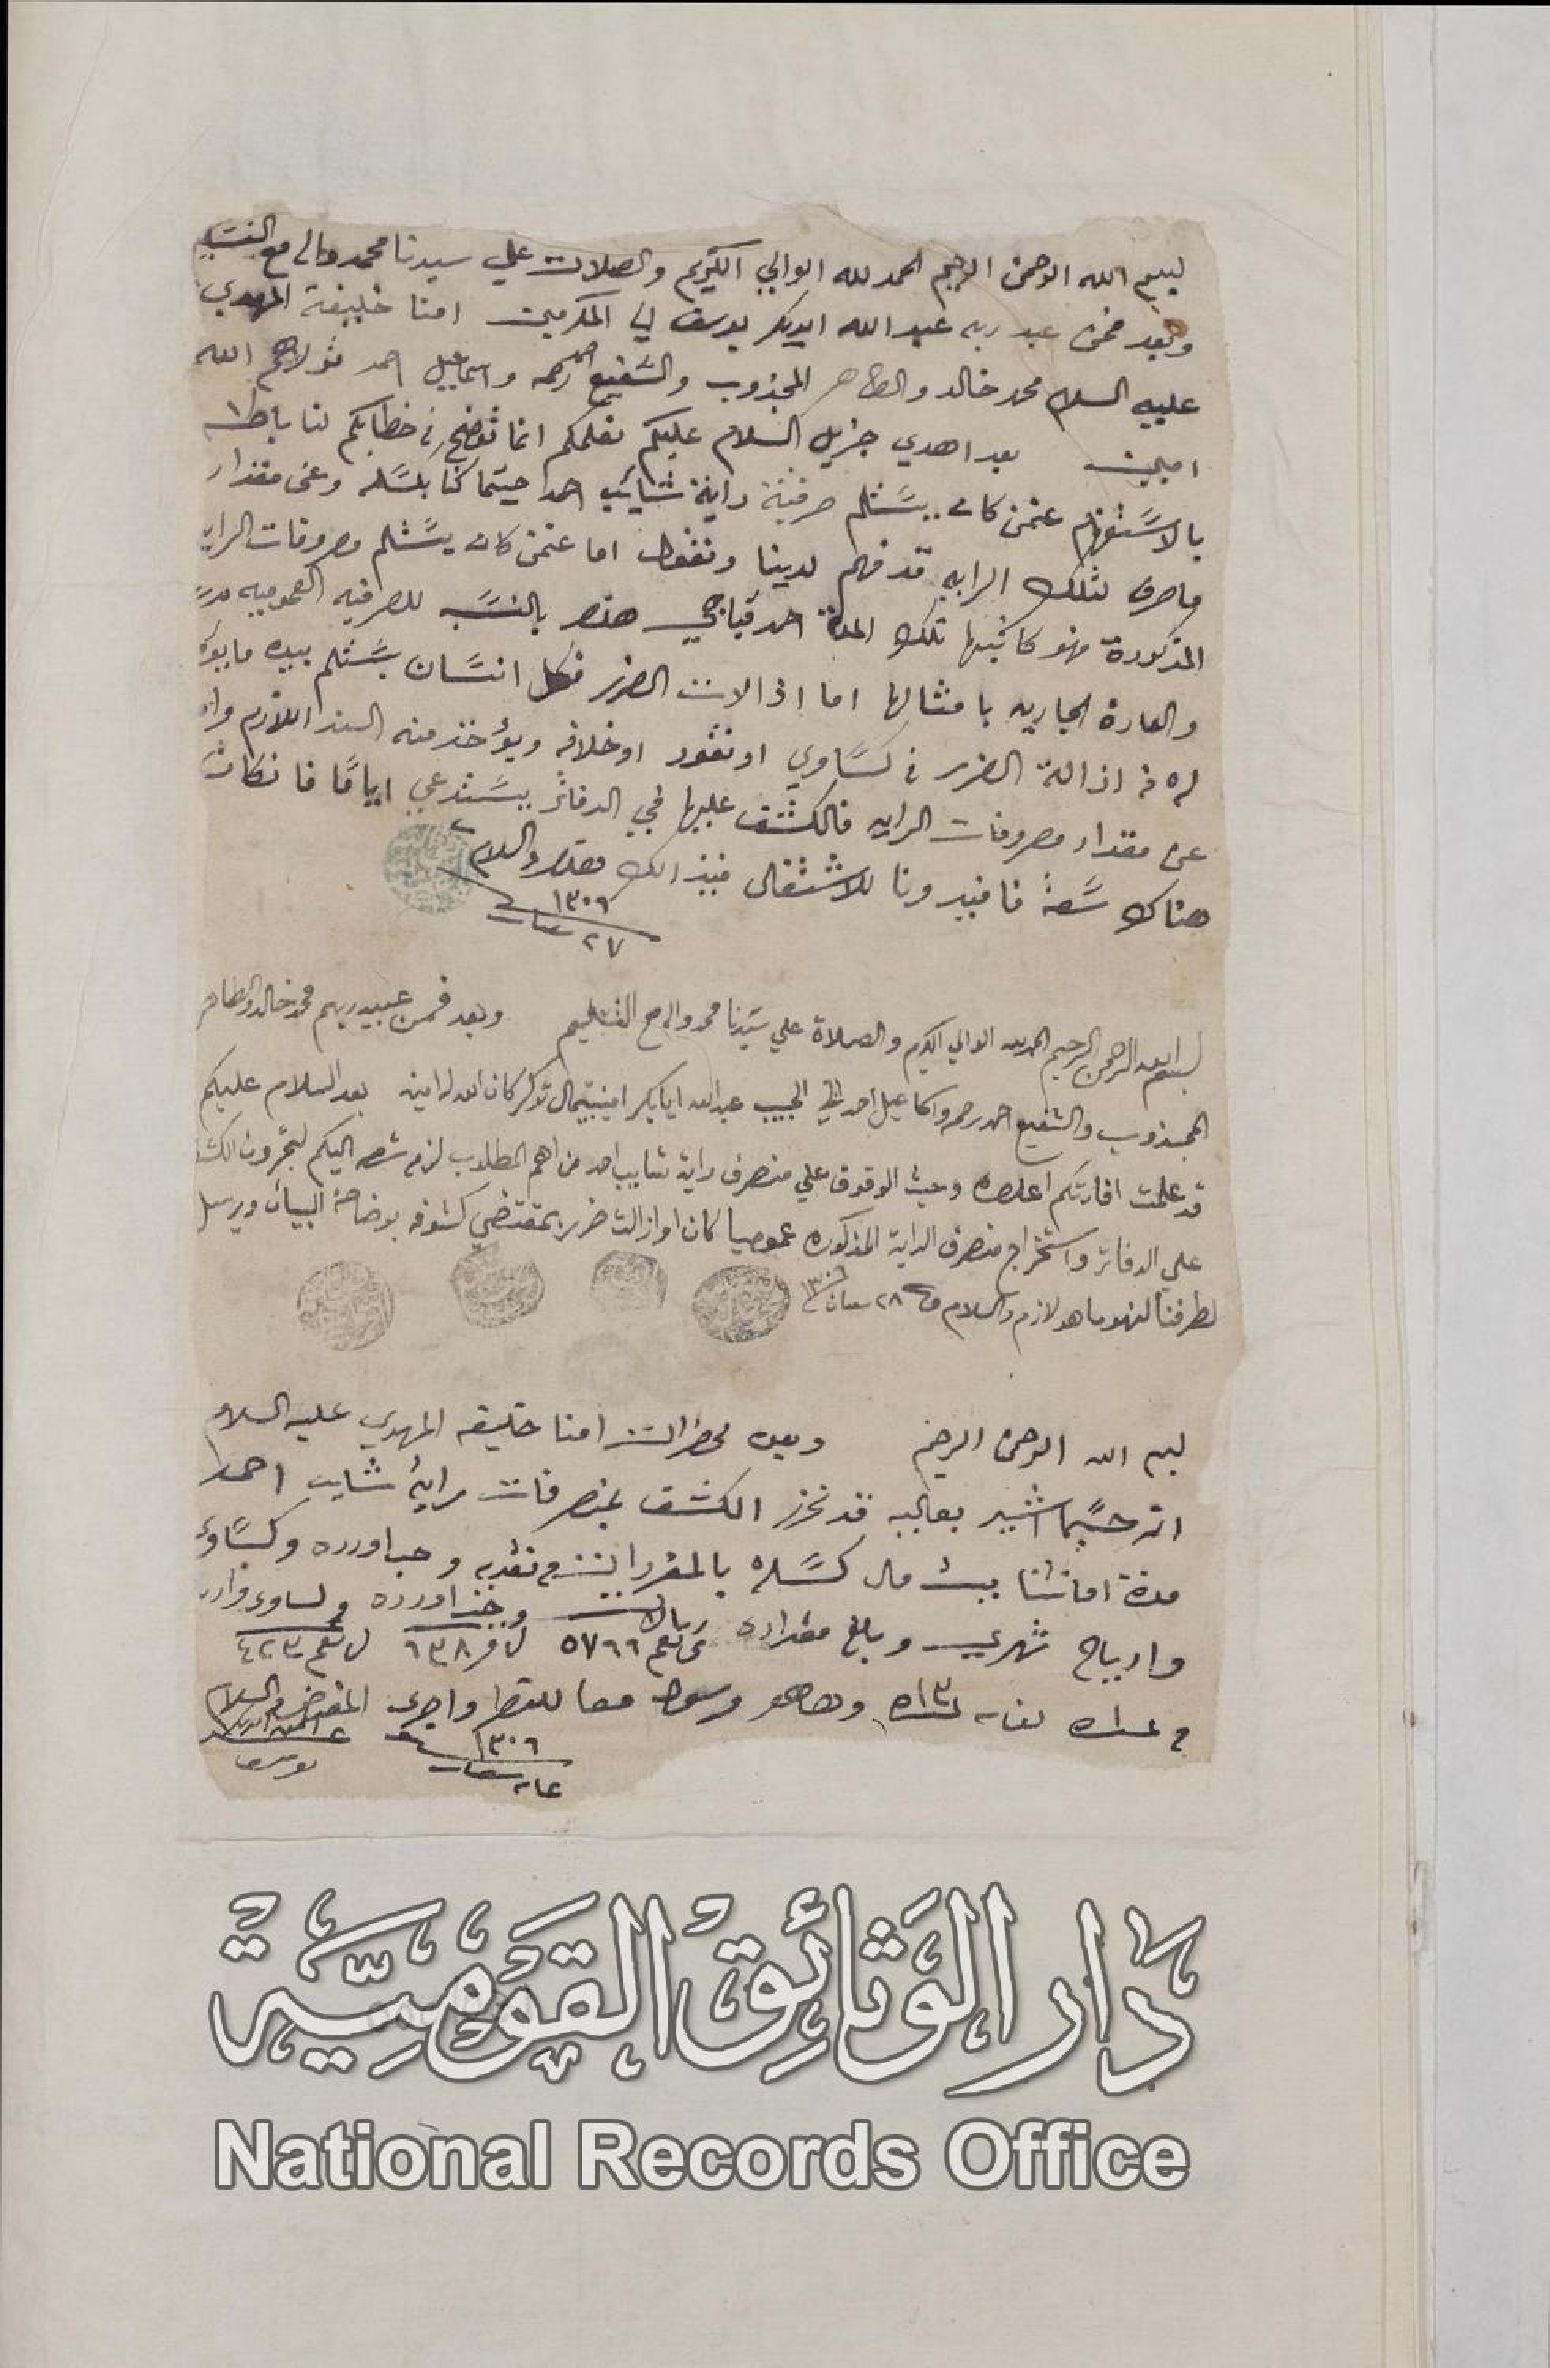 بسم الله الرحمن الرحيم الحمد لله الوالي الكريم والصلات علي سيدنا محمد واله مع التسليم
وبعد فمن عبد ربه عبد الله ابوبكر يوسف الي المكرمين امنا خليفة المهدي
عليه السلام محمد خالد والطاهر المجذوب والشفيع احمد رحمه واسماعيل احمد تولاهم الله
امين بعد اهدي جزيل السلام عليكم نعلمكم انما توضح في خطابكم لنا باطنه
بالاستفهام عن من كان يستلم صرفية راية شايب احمد حيثما كنا بكسله وعن مقدار
ماصرف لتلك الرايه قد فهم لدينا اما عن من كان يستلم مصروفات الرايه
المذكورة فهو كاتبها تلك المدة احمد قباجي هذا بالنسبه للصرفيه العموميه
والعادة الجاريه بامثالها اما اذالات الضرر فكل انسان يستلم بيده ما
له في اذالة الضرر في كساوي او نقود او خلافه ويؤخذ منه السند اللازم واما
عن مقدار مصروفات الرايه فالكشف عليها في الدفاتر يستدعي اياما فانكانت
هناك سعة فافيدونا للاشتغال فيذالك والسلام
١٣٠٦
٢٧ شعبان
بسم الله الرحمن الرحيم الحمد لله الوالي الكريم والصلاة علي سيدنا محمد واله مع التسليم وبعد فمن عبيد ربهم محمد خالد والطاهر
المجذوب والشفيع احمد رحمه واسماعيل احمد الي الحبيب عبد الله ابابكر امين بيتمال توكر كان الله له امين بعد السلام عليكم
قد علمت افادتكم اعلاه وحيث الوقوف علي منصرف راية شايب احمد من اهم المطلوب لزم شرحه اليكم لتجروا الكشف
علي الدفاتر واستخراج منصرف الراية المذكوره عموميا كان او ازالت ضرر بمقتضي كشوفه بوضاحة البيان ويرسل
لطرفنا لنهو ما هو لازم والسلام ٢٨ شعبان ١٣٠٦
بسم الله الرحمن الرحيم وبعده لحضرات امنا خليفه المهدي عليه السلام
انه حسبما اشير بعاليه قد تحرر الكشف بمنصرفات راية شايب احمد
مدة امانتنا ببيت مال كسله بالمفردات نقديه وحب اورده وكساوي
وارباح شهري وبلغ مقداره ريالات ٥٧٦٦ اورده ٦٣٨ وكساوي ٤٢٣
وها هو مرسول معا واجرى المقتضي والسلام
١٣٠٦
غاية شعبان
عبد الله ابوبكر
يوسف
دَار الوَثائِق القَوميَّة
National Records Office